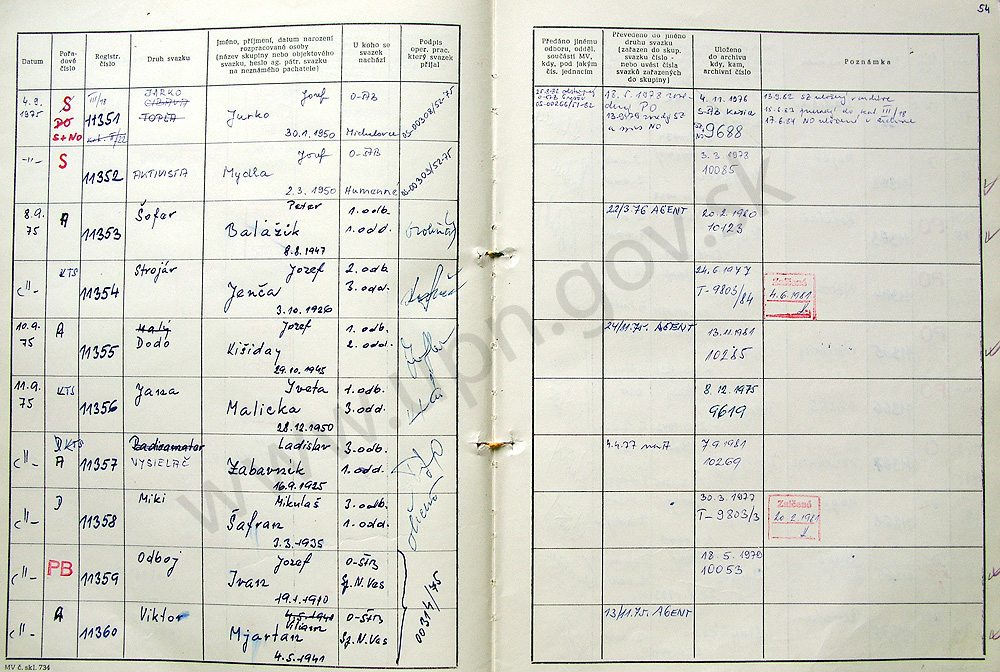 54
Datum
Pořadové číslo
Registr. číslo
Druh svazku
Jméno, příjmení, datum narození
rozpracované osoby
(název skupiny nebo objektového
svazku, heslo ag. pátr. svazku
na neznámého pachatele)
U koho se
svazek
nachází
Podpis
oper. prac.
který svazek
přijal
Předáno jinému
odboru, odděl.
součásti MV,
kdy, pod jakým
čís. jednacím
Převedeno do jiného
druhu svazku
(zařazen do skup.
svazku, heslo -
nebo uvést čísla
svazků zařazených
do skupiny)
Uloženo
do archivu
kdy, kam,
archivní číslo
Poznámka
4.9.
1975
S
PO
S+NO
III/18
11351
JARKO
TOPĽA
Jozef
Jurko
30.1.1950
O-ŠtB
Michalovce
OS-00308/52-75
18.5.1978
PO
4.11.1976
9688
-"-
S
11352
AKTIVISTA
Jozef
Mydla
2.3.1950
O-ŠtB
Humenné
OS-00303/52-75
3.3.1978
10085
8.9.
75
A
11353
Šofer
Peter
Balážik
8.8.1947
1. odb.
1. odd.
22/3.76 AGENT
20.2.1980
10123
-"-
KTS
11354
Strojár
Jozef
Jenča
3.10.1926
2. odb.
3. odd.
24.6.1977
T-9803/84
Zničené
4.6.1981
10.9.
75
A
11355
Malý
Dodo
Jozef
Kišiday
29.10.1945
1. odb.
2. odd.
24/11.75. AGENT
13.11.1981
10285
11.9.
75
KTS
11356
Jana
Iveta
Malicka
28.12.1950
1. odb.
3. odd.
8.12.1975
9619
-"-
KTS
A
11357
Radioamator
VYSIELAČ
Ladislav
Zabavnik
16.9.1925
3. odb.
1. odd.
4.4.77 na A
7.9.1981
10269
-"-
D
11358
Miki
Mikuláš
Šafran
3.3.1935
3. odb.
1. odd.
30.3.1977
T-9803/3
Zničené
20.2.1981
-"-
PB
11359
Odboj
Jozef
Ivan
19.1.1910
O-ŠtB
Sp.N.Ves
00314/75
18.5.1979
10053
-"-
A
11360
Viktor
4.5.1941
Viliam
Mjartan
4.5.1941
O-ŠtB
Sp.N.Ves
13/11.75. AGENT
MV č. skl. 734
www.upn.gov.sk